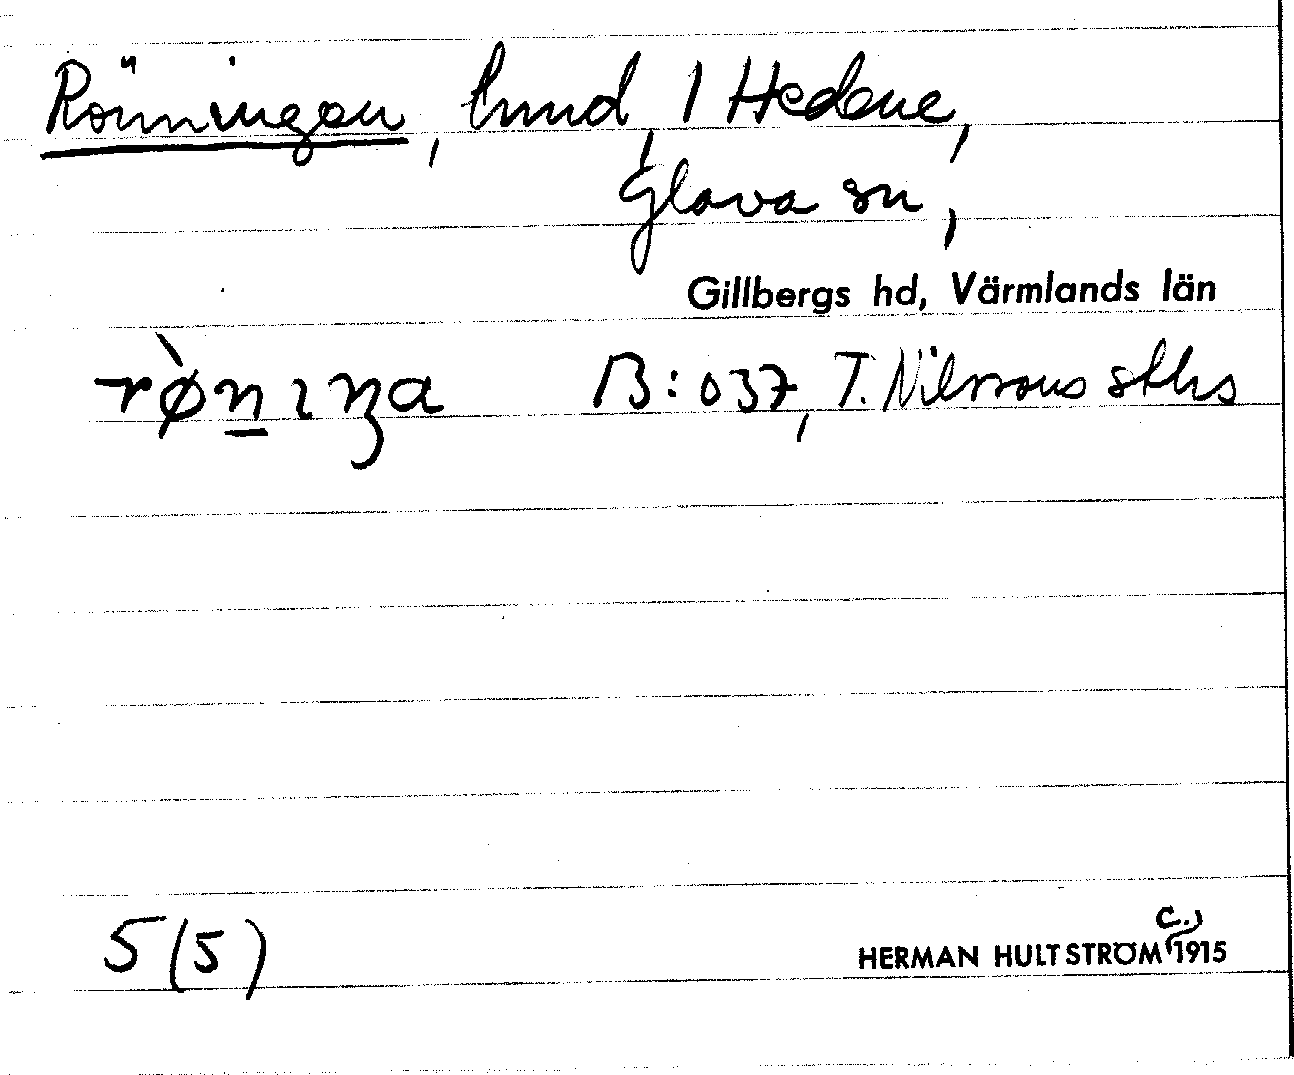 Rönningen, lund, 1 Hedane,
Glava sn,
Gillbergs hd, Värmlands län
rø̀n̲ıŋa B:037, T. Nilssons sths
5(5)
HERMAN HULTSTRÖM c., 1915